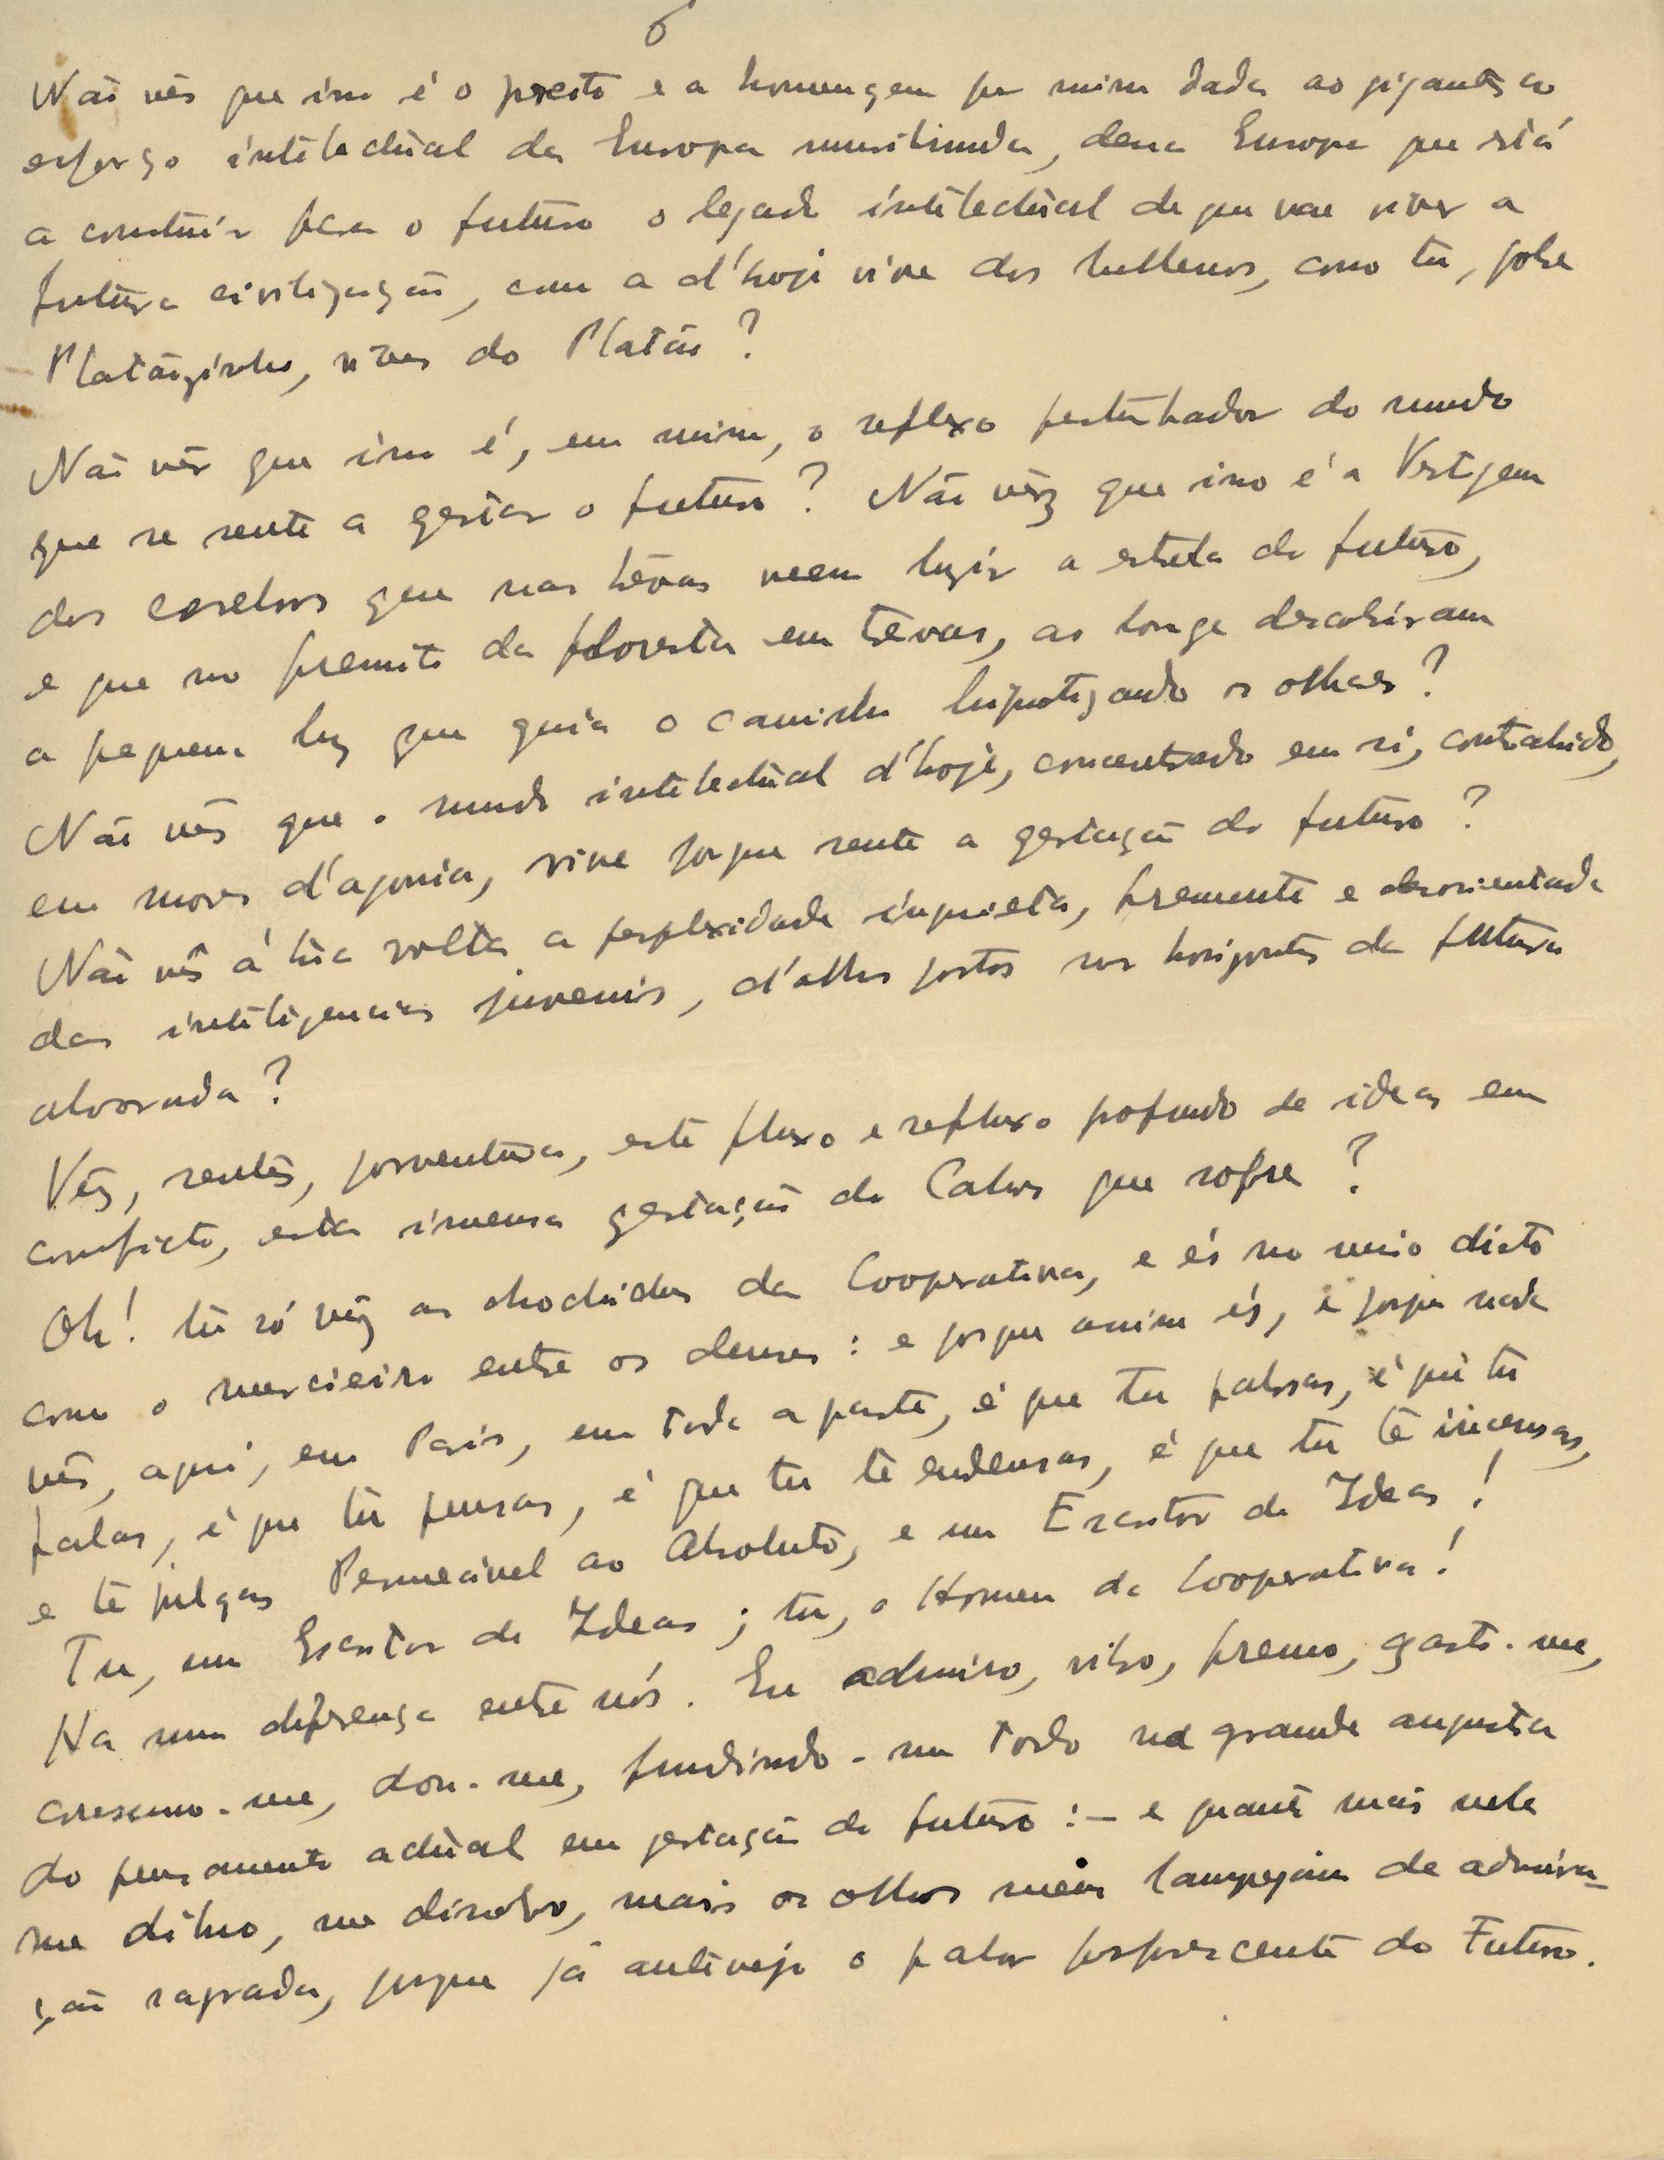 6
Não vês que isso é o preito e a homenagem por mim dada ao gigantesco
esforço intelectual da Europa moribunda, dessa Europa que está
a construir para o futuro o legado intelectual de que vae viver a
futura civilização, como a d'hoje vive dos hellenos, como tu, pobre
Platãozinho, vives do Platão?
Não vês que isso é, em mim, o reflexo perturbador do mundo
que se sente a gestar o futuro? Não vêz que isso é a Vertigem
dos cerebros que nas trévas veem luzir a estrela do futuro,
e que no fremito da floresta em trévas, ao longe descobriram
a pequena luz que guia o caminho hipnotizando os olhares?
Não vês que o mundo intelectual d'hoje, concentrado em si, contrahido,
em mores d'agonia, vive porque sente a gestação do futuro?
Não vês á túa volta a perplexidade inquieta, fremente e desorientada
das inteligencias juvenis, d'olhos postos nos horizontes da futura
alvorada?
Vês, sentes, porventura, este fluxo e refluxo profundo de ideas em
conflicto, esta imensa gestação do Cahos que sofre?
Oh! tu só vêz as chochides da Cooperativa, e és no meio disto
como o mercieiro entre os deuses: e porque assim és, e porque nada
vês, aqui, em Paris, em toda a parte, é que tu palras, é que tu
falas, é que tu pensas, é que tu te endeusas, é que tu te incensas,
e te julgas Permeável ao Absoluto, e um Escritor de Ideas!
Tu, um Escritor de Ideas; tu, o Homem da Cooperativa!
Ha uma diferença entre nós. Eu admiro, vibro, fremo, gasto-me,
consumo-me, dou-me, fundindo-me todo na grande angustia
do pensamento actual em gestação do futuro:- e quanto mais nela
me diluo, me dissolvo, mais os olhos meus lampejam de admira-
ção sagrada, porque já antevejo o palor fosforescente do Futuro.